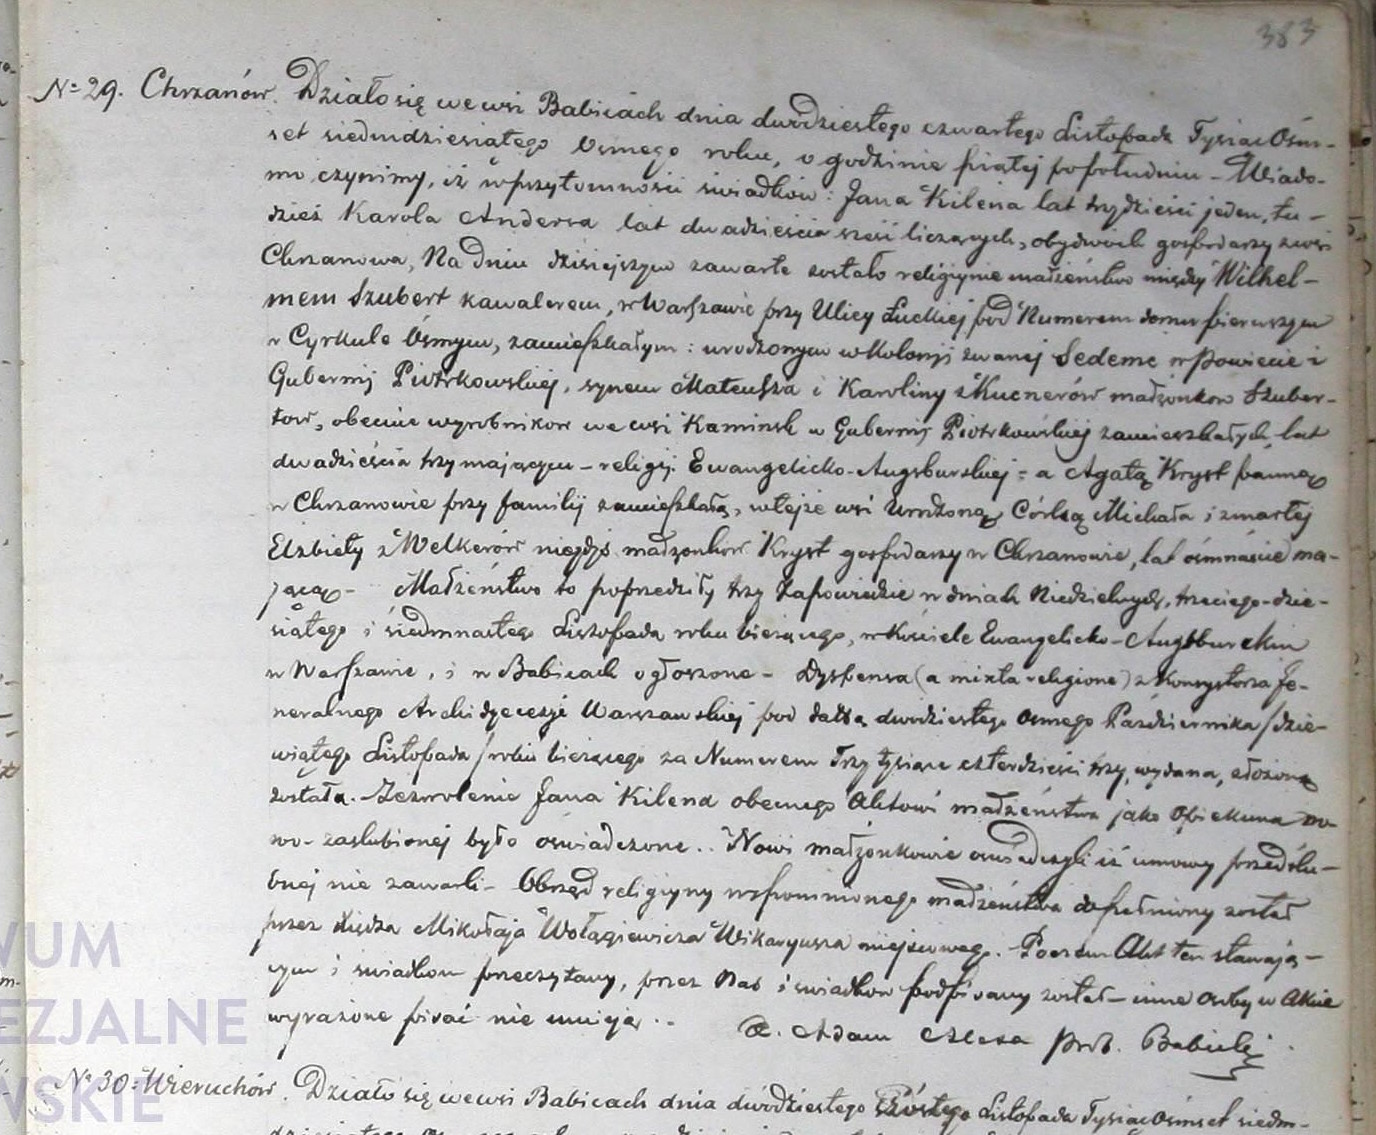 383
No 29. Chrzanów. Działo się we wsi Babicach dnia dwódziestego czwartego Listopada Tysiąc Ośm-
set siedmdziesiątego Osmego roku, o godzinie piątej popołudniu - Wiado-
mo czynimy, iż w przytomności świadków: Jana Kilena lat trzydzieści jeden, tu-
dzież Karola Andersa lat dwadzieścia sześć liczących, obydwóch gospodarzy z wsi
Chrzanowa, Na dniu dzisiejszym zawarte zostało religijnie małżeństwo między Wilhel-
mem Szubert kawalerem, w Warszawie przy Ulicy Łuckiej pod Numerem domu pierwszym
w Cyrkule Ósmym, zamieszkałym: urodzonym w Kolonji zwanej Sedeme w Powiecie i
Gubernij Piotrkowskiej, synem Mateusza i Karoliny z Kucnerów małżonków Szuber-
tów, obecnie wyrobników we wsi Kaminsk w Gubernij Piotrkowskiej zamieszkałych, lat
dwadzieścia trzy mającym - religij Ewangelicko-Augsburskiej = a Agatą Kryst panną
w Chrzanowie przy familij zamieszkałą, w tejże wsi Urodzoną Córką Michała i zmarłej
Elżbiety z Welkerów niegdyś małżonków Kryst gospodarzy w Chrzanowie, lat ośmnaście ma-
jącą - Małżeństwo to poprzedziły trzy Zapowiedzie w dniach Niedzielnych, trzeciego-dzie-
siątego i siedmnastego Listopada roku bieżącego, w Kościele Ewangelicko-Augsburskim
w Warszawie, i w Babicach ogłoszone - Dyspensa (a mixta religione) z Konsystorza Je-
neralnego Archidyecezji Warszawskiej pod datą dwódziestego osmego Października /dzie-
wiątego Listopada/ roku bieżącego za Numerem Trzy tysiące czterdzieści trzy, wydana, złożoną
została. Zezwolenie Jana Kilena obecnego Aktowi małżeństwa jako Opiekuna no-
wo-zaślubionej było oświadczone.. Nowi małżonkowie oświadczyli iż umowy przedślu-
bnej nie zawarli - Obrzęd religijny wspomnionego małżeństwa dopełniony został
przez Xiędza Mikołaja Wołągiewicza Wikaryusza miejscowego. Poczem Akt ten stawają-
cym i świadkom przeczytany, przez Nas i świadków podpisany został - inne osoby w Akcie
wyrażone pisać nie umieją. - X. Adam Prob. Babicki
No 30. Wieruchów. Działo się we wsi Babicach dnia dwódziestego Szóstego Listopada Tysiąc ośmset siedm-
WUM
EZJALNE
WSKIE